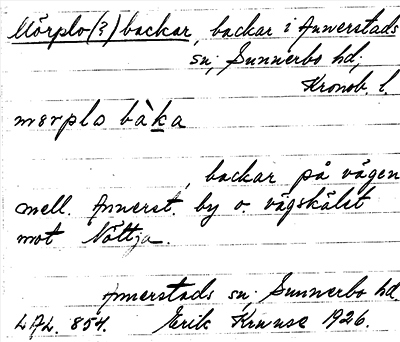 Mörplo(?)backar, backar i Annerstads
sn, Sunnerbo hd,
Kronob. l.
mɵrplo bàka
, backar på vägen
mell. Annerst. by o. vägskälet
mot Nöttja.
Annerstads sn, Sunnerbo hd
LAL. 854. Erik Kruuse 1926.